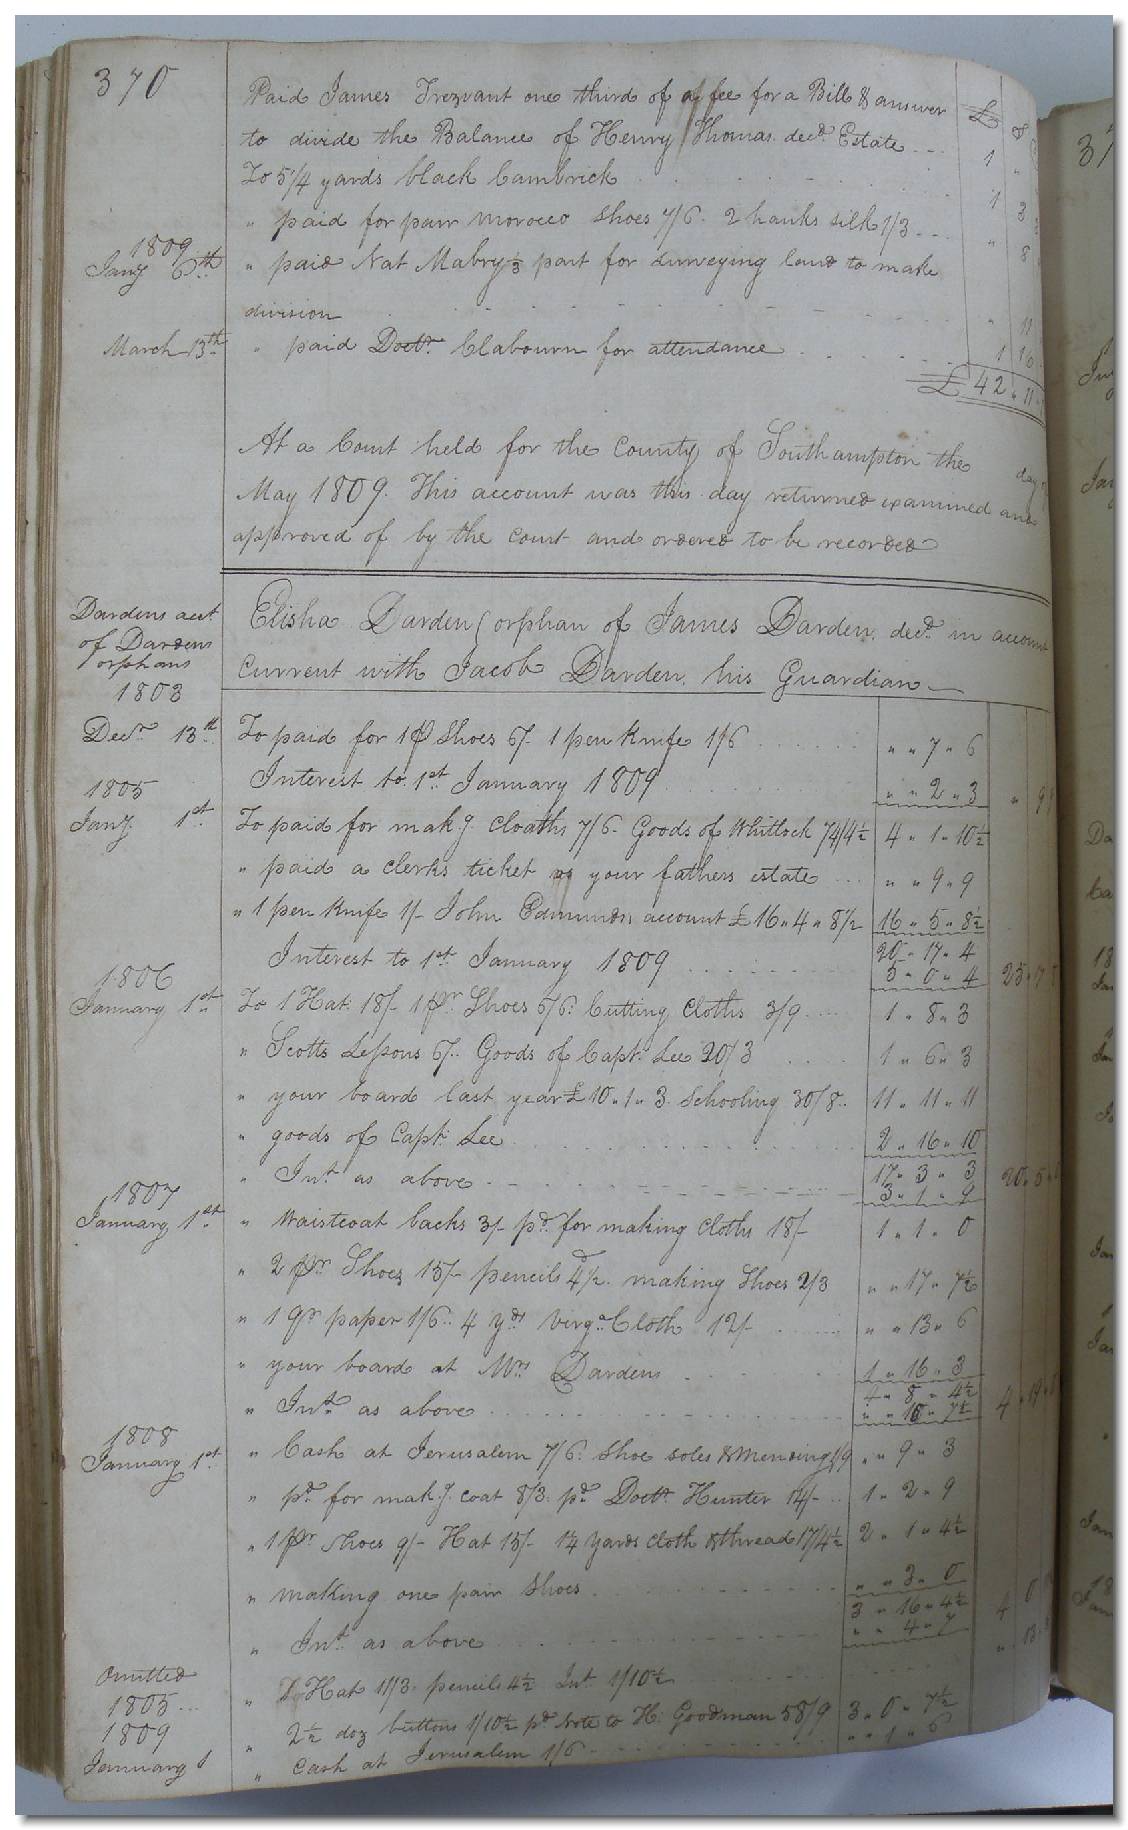 370
Paid James Trezvant one third of a fee for a Bill & answer £ S
to divide the Balance of Henry Thomas decd Estate 1 "
To 5 1/4 yards black Cambrick 1 3
" paid for pair morocco Shoes 7/6. 2 hanks silk 1/3 " 8
1809
Jany 6th " paid Nat Mabry 1/3 part for surveying land to make
division " 11
March 13th " paid Doctr Clabourn for attendance 1 16
£ 42 " 11
At a Court held for the County of Southampton the day of
May 1809. This account was this day returned examined and
approved of by the court and ordered to be recorded
Dardens acct
of Dardens
orphans
Elisha Darden orphan of James Darden decd in account
current with Jacob Darden his Guardian
1803
Decr 13th To paid for 1 p Shoes 6/. 1 pen knife 1/6 " " 7 " 6
Interest to 1st January 1809 " " 2 " 3 " 9
1805
Jany 1st To paid for makg cloaths 7/6. Goods of Whitlock 74/4½ 4 " 1 " 10½
" paid a clerks ticket vs your fathers estate " " 9 " 9
" 1 pen knife 1/- John Edmunds account £16 " 4 " 8½ 16 " 5 " 8½
20 " 17 " 4
Interest to 1st January 1809 5 " 0 " 4 25 " 17
1806
January 1st To 1 Hat 18/- 1 pr Shoes 6/6 Cutting cloths 3/9 1 " 8 " 3
" Scotts Lessons 6/. Goods of Capt Lee 20/3 1 " 6 " 3
" your board last year £10 " 1 " 3. Schooling 30/8 11 " 11 " 11
" goods of Capt Lee 2 " 16 " 10
17 " 3 " 3
" Int as above 3 " 1 " 9 20 " 5
1807
January 1st " Waistcoat backs 3/- pd for making cloths 18/- 1 " 1 " 0
" 2 pr Shoes 15/- pencils 4½d making Shoes 2/3 " " 17 " 7½
" 1 qr paper 1/6. 4 yds Virga Cloth 12/- " " 13 " 6
" your board at Mrs Dardens 1 " 16 " 3
4 " 8 " 4½
" Int as above " " 10 " 7½ 4 " 19
1808
January 1st " Cash at Jerusalem 7/6. Shoe soles & mending 1/9 " " 9 " 3
" pd for makg coat 8/3. pd Doctr Hunter 14/- 1 " 2 " 9
" 1 pr Shoes 9/- Hat 15/- 1¼ yards cloth & thread 17/4½ 2 " 1 " 4½
" making one pair Shoes " " 3 " 0
3 " 16 " 4½
" Int as above " " 4 " 7 4 " 0
Omitted
1805 " Hat 11/3. pencils 4½ Int 1/10½ " 13
1809 " 2½ doz buttons 1/10½ pd Note to H. Goodman 58/9 3 " 0 " 7½
January 1 " Cash at Jerusalem 1/6 " " 1 " 6